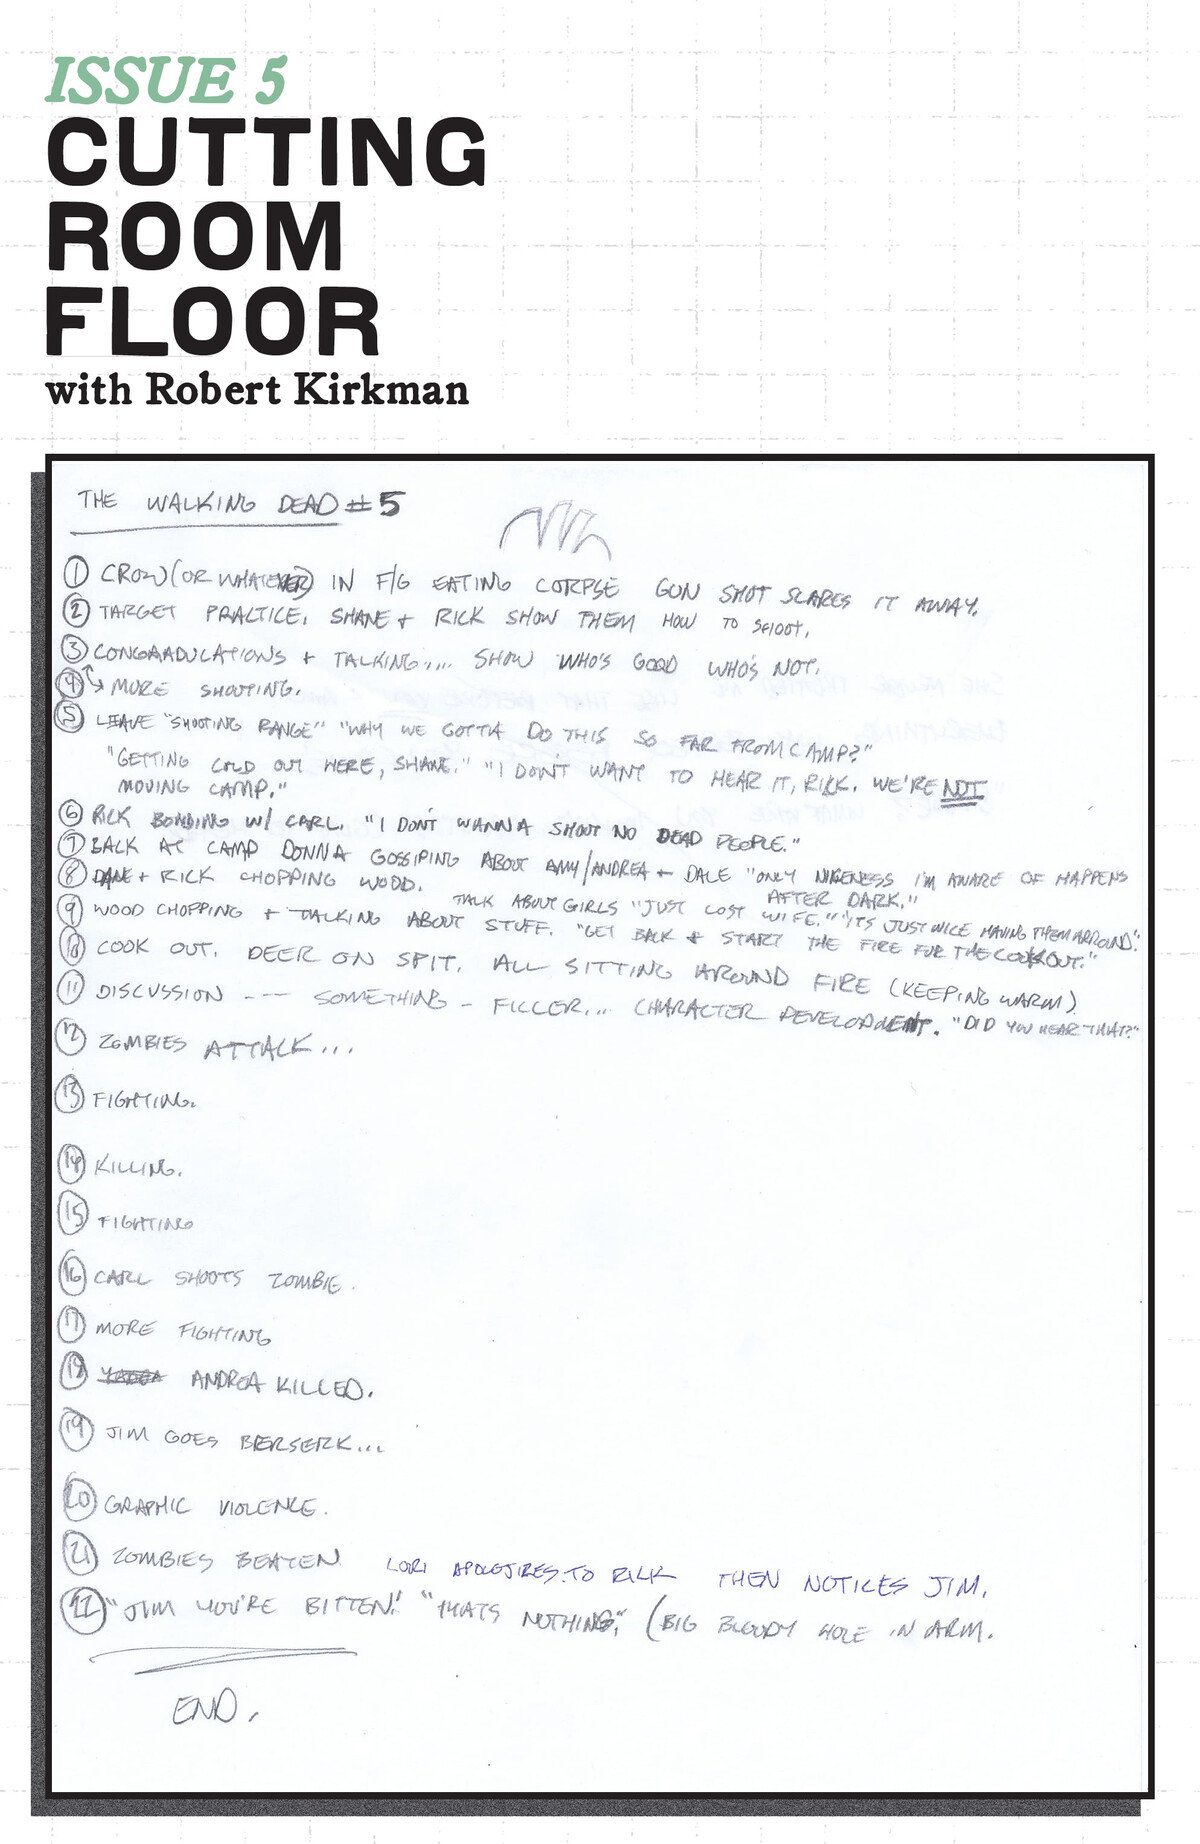 ISSUE 5
CUTTING
ROOM
FLOOR
with Robert Kirkman
THE WALKING DEAD #5
1 CROW (OR WHATEVER) IN F/G EATING CORPSE GUN SHOT SCARES IT AWAY.
2 TARGET PRACTICE. SHANE + RICK SHOW THEM HOW TO SHOOT.
3 CONGRADULATIONS + TALKING.... SHOW WHO'S GOOD WHO'S NOT.
4 MORE SHOOTING.
5 LEAVE "SHOOTING RANGE" "WHY WE GOTTA DO THIS SO FAR FROM CAMP?"
"GETTING COLD OUT HERE, SHANE." "I DON'T WANT TO HEAR IT, RICK. WE'RE NOT
MOVING CAMP."
6 RICK BONDING W/ CARL. "I DON'T WANNA SHOOT NO DEAD PEOPLE."
7 BACK AT CAMP DONNA GOSSIPING ABOUT AMY/ANDREA + DALE "ONLY NICENESS I'M AWARE OF HAPPENS
AFTER DARK."
8 DALE + RICK CHOPPING WOOD. TALK ABOUT GIRLS "JUST LOST WIFE." "ITS JUST NICE HAVING THEM ARROUND."
9 WOOD CHOPPING + TALKING ABOUT STUFF. "GET BACK & START THE FIRE FOR THE COOKOUT."
10 COOK OUT. DEER ON SPIT. ALL SITTING AROUND FIRE (KEEPING WARM)
11 DISCUSSION --- SOMETHING - FILLER... CHARACTER DEVELOPMENT. "DID YOU HEAR THAT?"
12 ZOMBIES ATTACK...
13 FIGHTING.
14 KILLING.
15 FIGHTING
16 CARL SHOOTS ZOMBIE.
17 MORE FIGHTING
18 ANDREA KILLED.
19 JIM GOES BERSERK...
20 GRAPHIC VIOLENCE.
21 ZOMBIES BEATEN LORI APOLOJIZES TO RICK THEN NOTICES JIM.
22 "JIM YOU'RE BITTEN!" "THATS NOTHING." (BIG BLOODY HOLE IN ARM.
END.